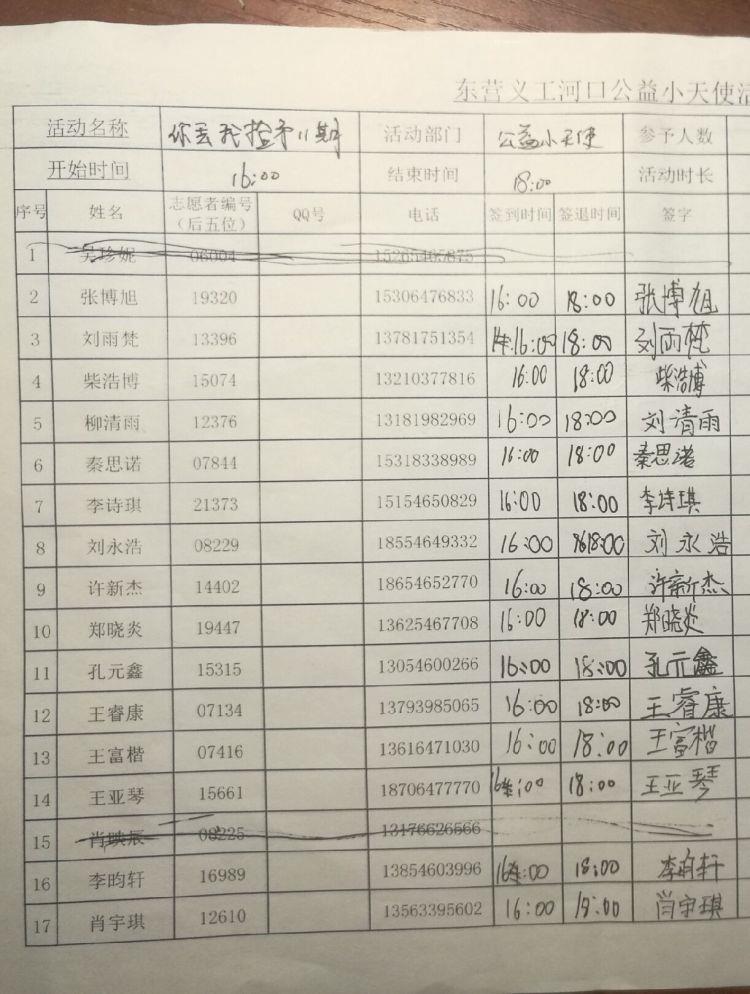 东营义工河口公益小天使活
活动名称 你丢我捡第11期 活动部门 公益小天使 参予人数
开始时间 16:00 结束时间 18:00 活动时长
序号 姓名 志愿者编号（后五位） QQ号 电话 签到时间 签退时间 签字
1 吴珍妮 06004
2 张博旭 19320 15306476833 16:00 18:00 张博旭
3 刘雨梵 13396 13781751354 16:00 18:00 刘雨梵
4 柴浩博 15074 13210377816 16:00 18:00 柴浩博
5 柳清雨 12376 13181982969 16:00 18:00 刘清雨
6 秦思诺 07844 15318338989 16:00 18:00 秦思诺
7 李诗琪 21373 15154650829 16:00 18:00 李诗琪
8 刘永浩 08229 18554649332 16:00 18:00 刘永浩
9 许新杰 14402 18654652770 16:00 18:00 许新杰
10 郑晓炎 19447 13625467708 16:00 18:00 郑晓炎
11 孔元鑫 15315 13054600266 16:00 18:00 孔元鑫
12 王睿康 07134 13793985065 16:00 18:00 王睿康
13 王富楷 07416 13616471030 16:00 18:00 王富楷
14 王亚琴 15661 18706477770 16:00 18:00 王亚琴
15 肖映辰 08225 13176626566
16 李昀轩 16989 13854603996 16:00 18:00 李昀轩
17 肖宇琪 12610 13563395602 16:00 18:00 肖宇琪